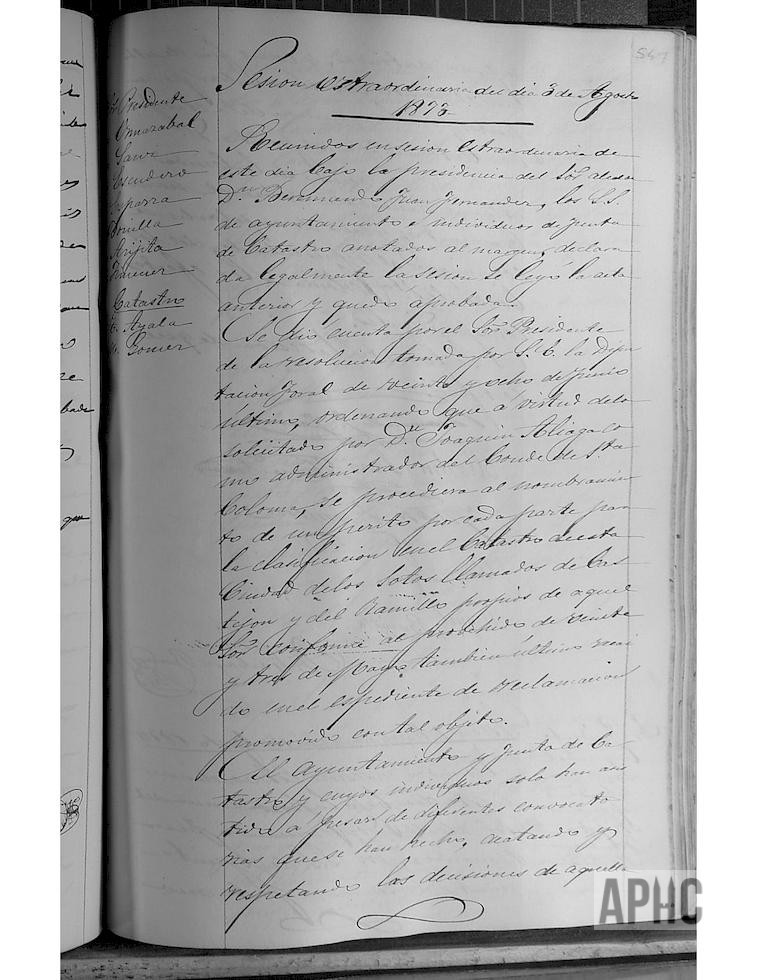 547
Sesion extraordinaria del dia 3 de Agosto
1893
Presidente
Ormazabal
Sanz
Escudero
Esparza
Bonilla
Arijita
Jimenez
Catastro
Ayala
Gomez
Reunidos en sesion estraordinaria de
este dia bajo la presidencia del Sor. alcalde
Dn. Juan Fernandez, los S.S.
de ayuntamiento é individuos de Junta
de Catastro anotados al margen, declara
da legalmente la sesion se leyó la acta
anterior y quedó aprobada.
Se dió cuenta por el Sor. Presidente
de la resolucion tomada por S. E. la Dipu
tacion foral de veinte y ocho de Junio
último, ordenando que á virtud de lo
solicitado por Dn. Joaquin Aliaga co
mo administrador del Conde de Sta.
Coloma, se procediera al nombramien
to de un perito por cada parte para
la clasificacion en el Catastro de esta
Ciudad de los Sotos llamados de Cas
tejon y del Ramillo propios de aquel
Sor. conforme al provehido de veinte
y tres de Mayo tambien último recai
do en el espediente de reclamacion
promovido con tal objeto.
El ayuntamiento y Junta de Ca
tastro y cuyos individuos solo han asis
tido á pesar de diferentes convocato
rias que se han hecho, acatando y
respetando las decisiones de aquella
APHC